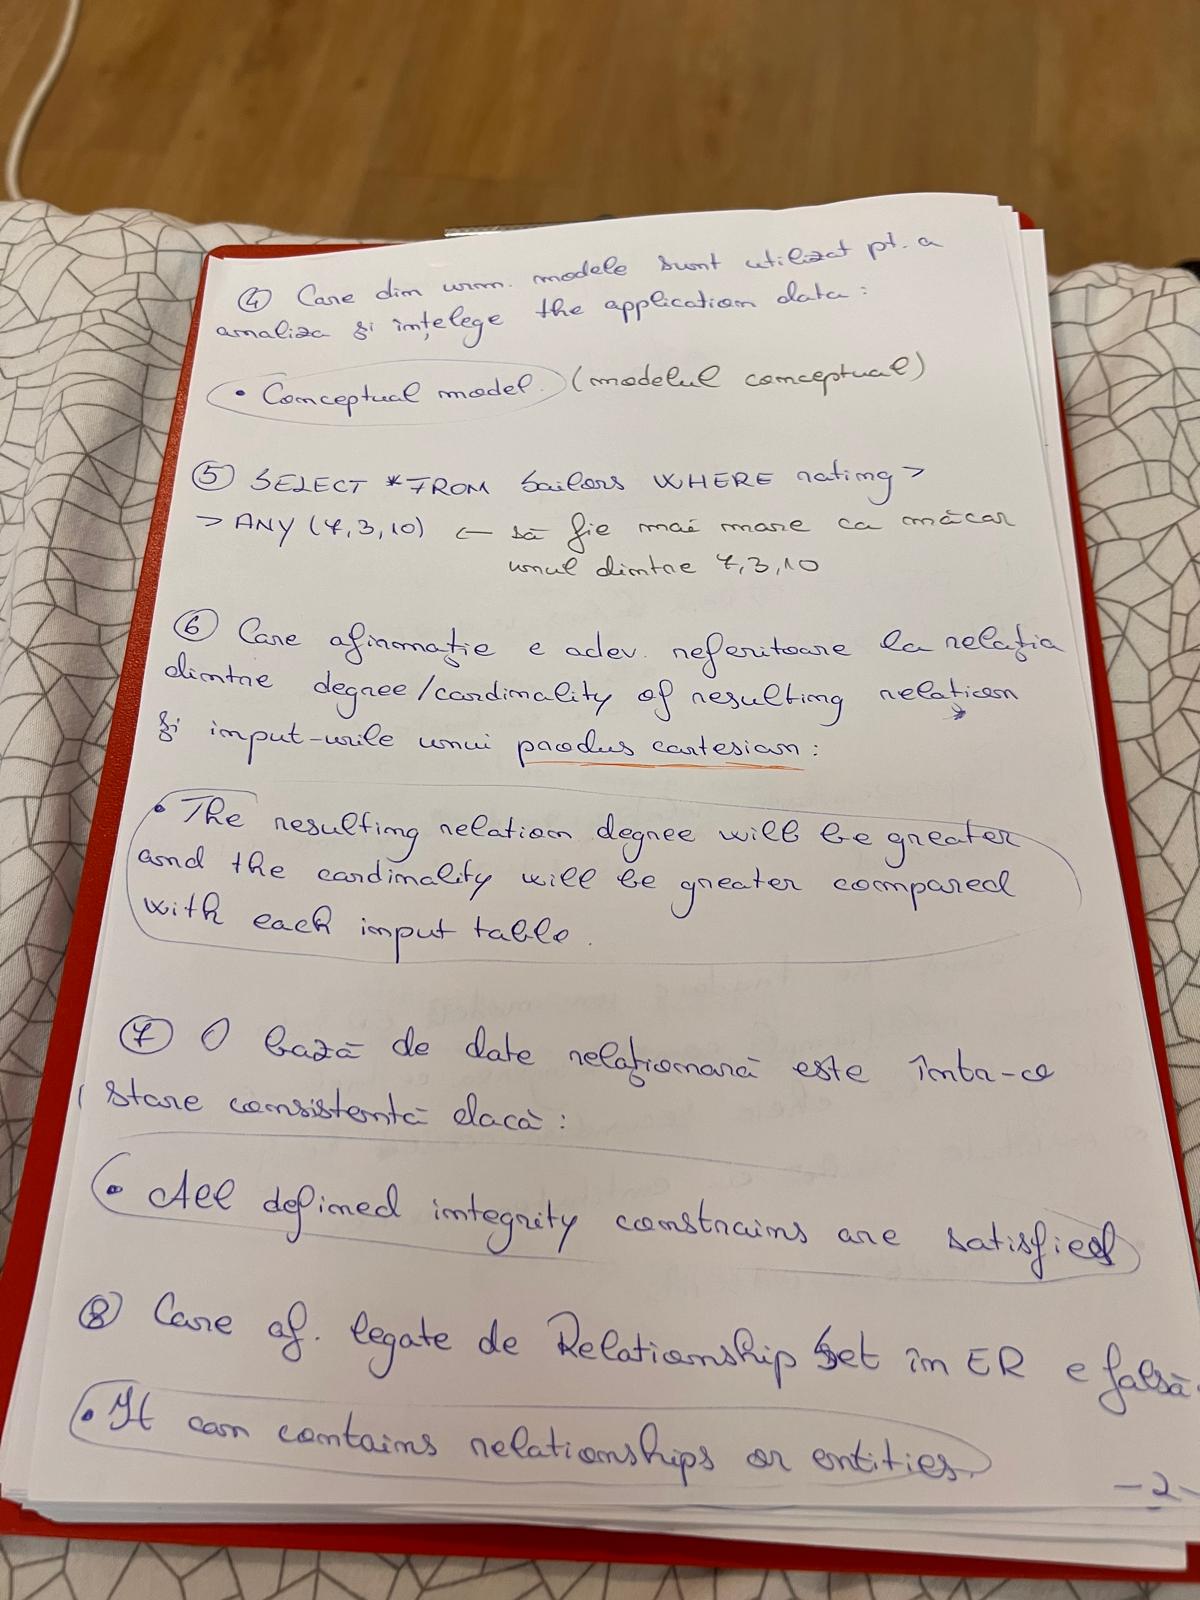 ④ Care din urm. modele sunt utilizat pt. a
analiza și înțelege the application data:
• Conceptual model. (modelul conceptual)
⑤ SELECT * FROM Sailors WHERE rating >
> ANY (7,3,10) ← să fie mai mare ca măcar
unul dintre 7,3,10
⑥ Care afirmație e adev. referitoare la relația
dintre degree/cardinality of resulting relation
și input-urile unui produs cartesian:
• The resulting relation degree will be greater
and the cardinality will be greater compared
with each input table.
⑦ O bază de date relațională este într-o
stare consistentă dacă:
• All defined integrity constrains are satisfied
⑧ Care af. legate de Relationship Set în ER e falsă.
• It can contains relationships or entities.
-2-